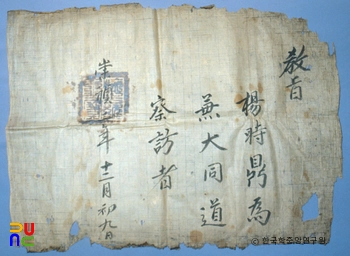 教旨
楊時鼎為
兼大同道
察訪者
崇禎二年十二月初九日
© 한국학중앙연구원